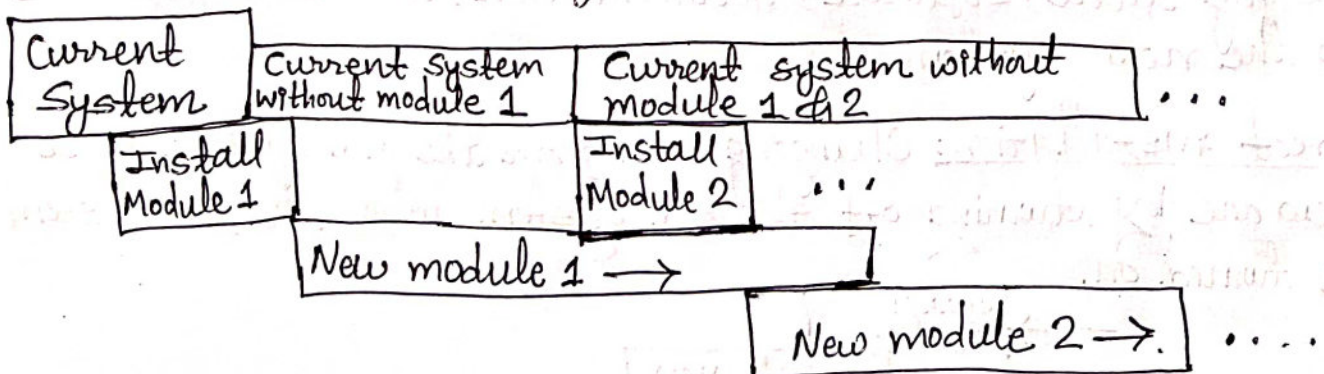 Current
System
Current system
without module 1
Current system without
module 1 & 2
...
Install
Module 1
Install
Module 2
...
New module 1 →
New module 2 →.
....